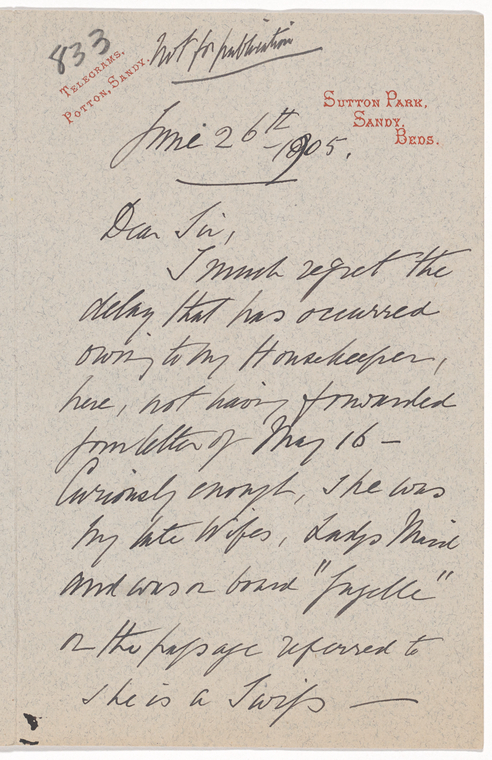 833
Not for publication
TELEGRAMS,
POTTON, SANDY.
SUTTON PARK,
SANDY,
BEDS.
June 26th 1905.
Dear Sir,
I much regret the
delay that has occurred
owing to my Housekeeper,
here, not having forwarded
your letter of May 16 –
Curiously enough, she was
my late Wifes, Ladys Maid
and was on board "Gazelle"
on the passage referred to
she is a Swiss —